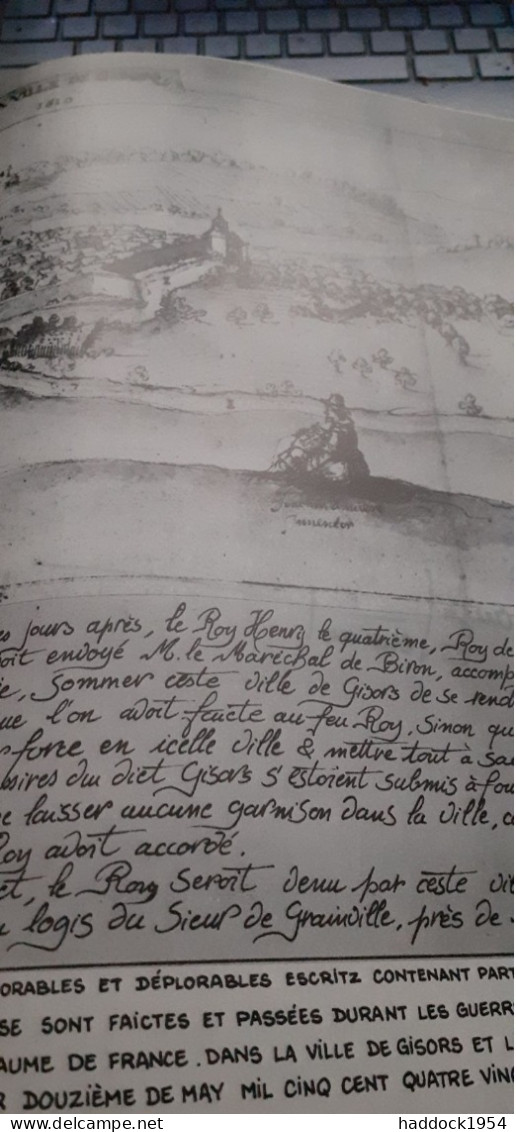 1610
es jours après, le Roy Henry le quatrième, Roy de
oit envoyé M. le Maréchal de Biron, accomp
ie, Sommer ceste ville de Gisors de se rend
ue l'on avoit faicte au feu Roy, Sinon qu
force en icelle ville & mettre tout à sac
oires du dict Gisors s'estoient submis à fou
e laisser aucune garnison dans la ville, c
oy avoit accordé.
et, le Roy seroit venu par ceste vil
logis du Sieur de Grainville, près de
ORABLES ET DÉPLORABLES ESCRITZ CONTENANT PART
SE SONT FAICTES ET PASSÉES DURANT LES GUERR
AUME DE FRANCE. DANS LA VILLE DE GISORS ET L
R DOUZIÈME DE MAY MIL CINQ CENT QUATRE VING
haddock1954